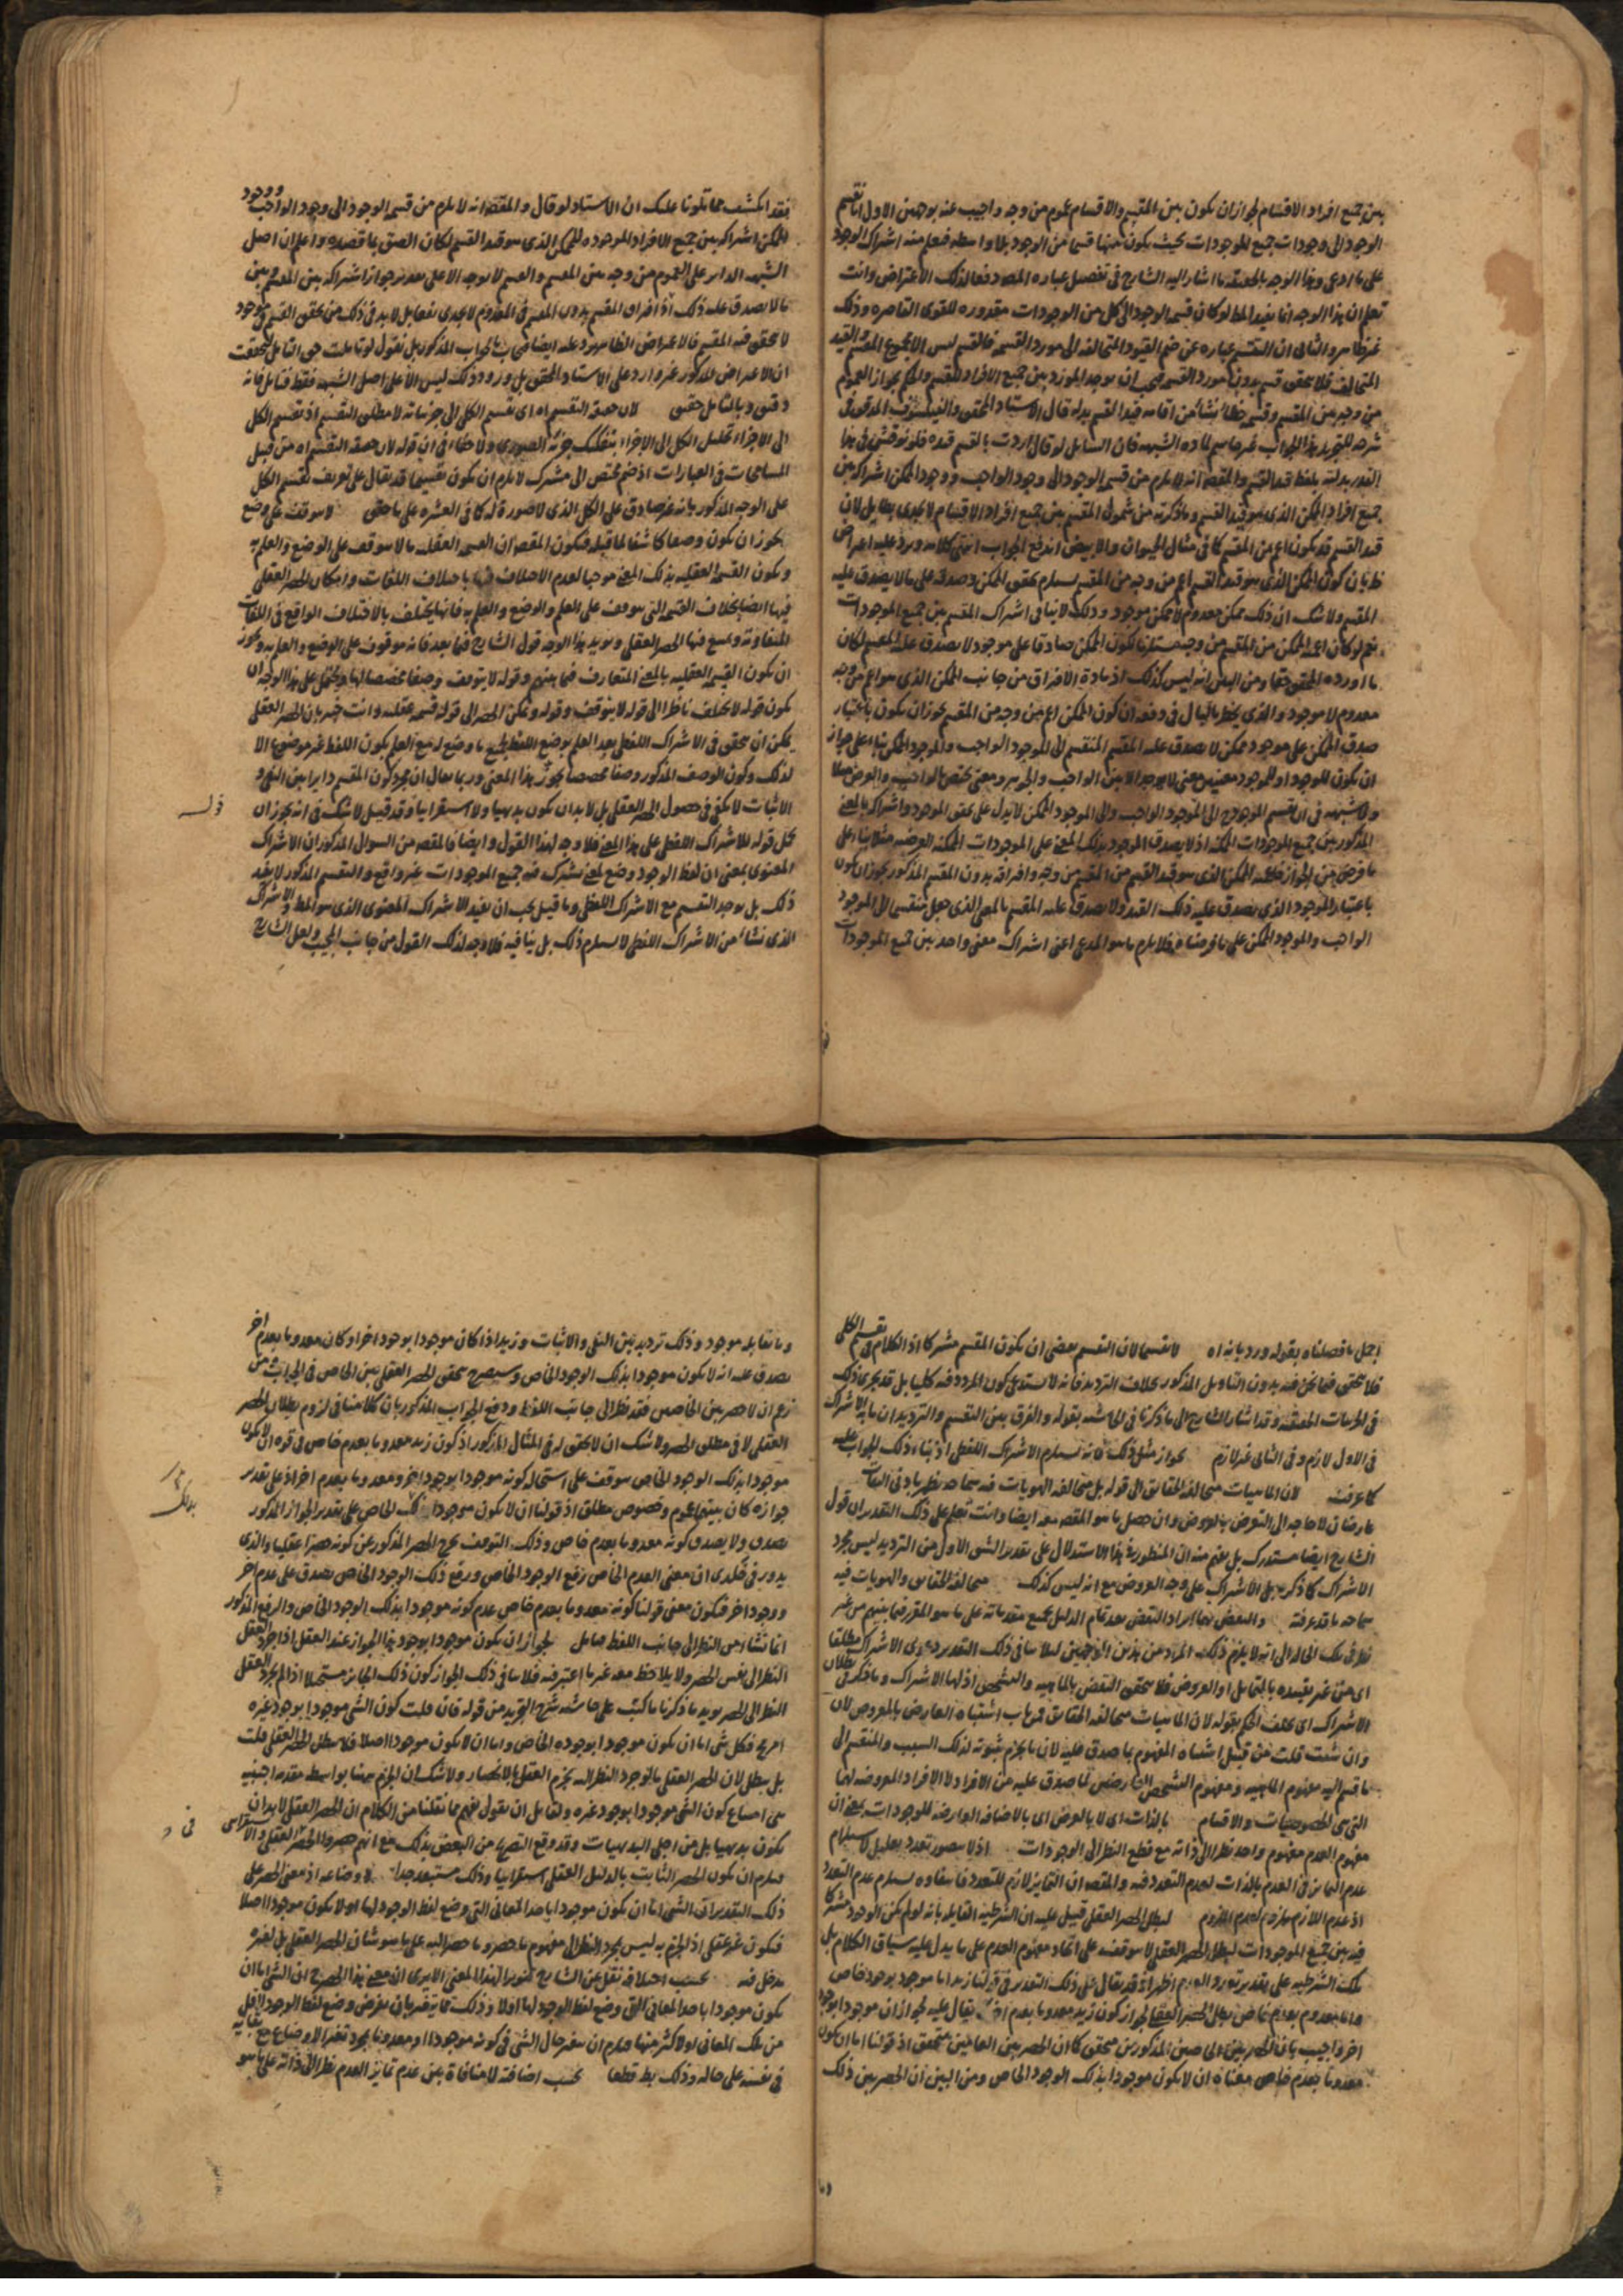 بين جميع افراد الاقسام لجواز ان يكون بين المقسم والاقسام عموم من وجه واجيب عنه بوجهين الاول انا نقسم
الوجود الى وجودات جميع الموجودات بحيث يكون كل منها قسما من الوجود بلا واسطه فيعلم منه اشتراك الوجود
على ما ادعى وهذا الوجه ما اشار اليه الشارح في تفصيل عباره المص دفعا لذلك الاعتراض وانت
تعلم ان هذا الوجه انما يفيد المط لو كان قسمه الوجود الى كل من الوجودات مقدوره للقوى القاصره وذلك
غير ظاهر والثانى ان التقسيم عباره عن ضم القيود المتخالفه الى مورد القسمه فالقسم ليس الا مجموع المقسم والقيد
المتخالف فلا يتحقق قسم بدون مورد القسمه فيجب ان يوجد المورد بين جميع الافراد للقسم والحكم بجواز العموم
من وجه بين المقسم وقسمه خطا نشا من اقامه قيد القسم بدله قال الاستاد المحقق والفيلسوف المدقق في
شرحه للتجريد هذا الجواب غير حاسم لماده الشبهه فان السايل لو قال اردت بالقسم قيده فلو نوقش في هذا
القدر بدلته بلفظ قيد القسم والمقصود انه لا يلزم من قسمه الوجود الى وجود الواجب ووجود الممكن اشتراكه بين
جميع افراد الممكن الذى هو قيد القسم وما ذكرته من شمول المقسم بين جميع افراد الاقسام لا يجدى بطايل لان
قيد القسم قد يكون اعم من المقسم كما في مثال الحيوان والابيض اندفع الجواب انتهى كلامه ويرد عليه اعتراض
ظ بان كون الممكن الذى هو قيد القسم اعم من وجه من المقسم يستلزم تحقق الممكن وصدقه على ما لا يصدق عليه
المقسم ولا شك ان ذلك ممكن معدوم لا ممكن موجود وذلك لا ينافى اشتراك المقسم بين جميع الموجودات
نعم لو كان اعميه الممكن من المقسم من وجه مستلزما لكون الممكن صادقا على موجود لا يصدق عليه المقسم لكان
ما اورده المحقق حقا ومن البين انه ليس كذلك اذ مادة الافتراق من جانب الممكن الذى هو اعم من وجه
معدوم لا موجود والذى يخطر بالبال في دفعه ان كون الممكن اعم من وجه من المقسم يجوز ان يكون باعتبار
صدق الممكن على موجود ممكن لا يصدق عليه المقسم المنقسم الى الموجود الواجب والموجود الممكن بناء على جواز
ان يكون للوجود او للموجود معنيين معنى لا يوجد الا بين الواجب والجوهر ومعنى يختص بالواجب والعرض مثلا
ولا شبهه في ان تقسيم الموجود الى الموجود الواجب والى الموجود الممكن لا يدل على تحقق الموجود واشتراكه بالمعنى
المذكور بين جميع الموجودات الممكنه اذ لا يصدق الموجود بذلك المعنى على الموجودات الممكنه العرضيه مثلا بناء على
ما فرض من الجواز فاعميه الممكن الذى هو قيد القسم من المقسم من وجه وافتراقه بدون المقسم المذكور يجوز ان يكون
باعتبار الموجود الذى يصدق عليه ذلك القيد ولا يصدق عليه المقسم بالمعنى الذى جعل منقسما الى الموجود
الواجب والموجود الممكن على ما فرضناه فلا يلزم ما هو المدعى اعنى اشتراك معنى واحد بين جميع الموجودات
فقد انكشف مما تلونا عليك ان الاستاد لو قال والمقصود انه لا يلزم من قسمه الوجود الى وجود الواجب ووجود
الممكن اشتراكه بين جميع الافراد الموجوده للممكن الذى هو قيد القسم لكان الصق بما قصده واعلم ان اصل
الشبهه الداير على العموم من وجه بين المقسم والقسم لا يوجه الا على تقدير جواز اشتراكه بين المقسم بين
ما لا يصدق عليه ذلك اذ افتراق المقسم بدون المقسم في المعدوم لا يجدى نفعا بل لا بد في ذلك من تحقق القسم في موجود
لا يتحقق فيه المقسم فالاعتراض الظاهر يرد عليه ايضا فيجاب بالجواب المذكور بل نقول لو تاملت حق التامل لتحققت
ان الاعتراض المذكور غير وارد على الاستاد المحقق بل وروده ليس الا على اصل الشبهه فقط فتامل فانه
دقيق وبالتامل حقيق لان حقيقه التقسيم اه اى تقسيم الكلى الى جزئياته لا مطلق التقسيم اذ تقسيم الكل
الى الاجزاء تحليل الكل الى الاجزاء بتفكيك جزئه الصورى ولا خفاء في ان قوله لان حقيقه التقسيم اه من قبيل
المسامحات في العبارات اذ ضم مختص الى مشترك لا يلزم ان يكون تقسيما قد يقال على تعريف تقسيم الكل
على الوجه المذكور بانه غير صادق على الكل الذى لا صورة له كما في العشره على ما حقق لا يتوقف على وضع
يجوز ان يكون وصفا كاشفا لما قبله فيكون المقصود ان القسمه العقليه ما لا يتوقف على الوضع والعلم به
ويكون القسمه العقليه بذلك المعنى موجبا لعدم الاختلاف فيها باختلاف اللغات وامكان الحصر العقلى
فيها ايضا بخلاف القسمه التى يتوقف على العلم والوضع والعلم به فانها يختلف بالاختلاف الواقع في اللغات
المتفاوته ويمتنع فيها الحصر العقلى ويويد هذا الوجه قول الشارح فيما بعد فانه موقوف على الوضع والعلم به ويجوز
ان يكون القسمه العقليه بالمعنى المتعارف فيما بينهم وقوله لا يتوقف وصفا مخصصا لها ويحتمل على هذا الوجه ان
يكون قوله لا يختلف ناظرا الى قوله لا يتوقف وقوله ويمكن الحصر الى قوله قسمه عقليه وانت خبير بان الحصر العقلى
يمكن ان يتحقق في الاشتراك اللفظى بعد العلم بوضع اللفظ لجميع ما وضع له مع العلم بكون اللفظ غير موضوع الا
لذلك وكون الوصف المذكور وصفا مخصصا يجوز هذا المعنى وربما يقال ان مجرد كون المقسم دايرا بين النفى و
الاثبات لا يكفى في حصول الحصر العقلى بل لا بد ان يكون بديهيا ولا استقرائيا وقد قيل لا شك في انه يجوز ان
يحمل قوله للاشتراك اللفظى على هذا المعنى فلا وجه لهذا القول وايضا فالمقصود من السوال المذكور ان الاشتراك
المعنوى بمعنى ان لفظ الوجود وضع لمعنى يشترك فيه جميع الموجودات غير واقع والتقسيم المذكور لا يفيد
ذلك بل يوجد التقسيم مع الاشتراك اللفظى وما قيل يجب ان يفيد الاشتراك المعنوى الذى هو المط والاشتراك
الذى نشا من الاشتراك اللفظى لا يستلزم ذلك بل ينافيه فلا وجه لذلك القول من جانب المجيب ولعل الشارح
اجمل ما فصلناه بقوله ورد بانه اه لا تقسيما لان التقسيم يقتضى ان يكون المقسم مشتركا اذ الكلام في تقسيم الكلى
فلا يتحقق فيما نحن فيه بدون التاويل المذكور بخلاف الترديد فانه لا يستدعى كون المردد فيه كليا بل قد يجرى ذلك
في الجزئيات الحقيقيه وقد اشار الشارح الى ما ذكرنا في الحاشيه بقوله والفرق بين التقسيم والترديد ان ما به الاشتراك
في الاول لازم وفي الثانى غير لازم بجواز مثل ذلك فانه يستلزم الاشتراك اللفظى اذ بناء ذلك الجواب عليه
كما عرفت لان الماهيات متخالفه الحقايق الى قوله بل متخالفه الهويات فيه مسامحه
عارضا ن لا حاجه الى التعرض بالعروض وان حصل ما هو المقصود به ايضا وانت تعلم على ذلك التقدير ان قول
الشارح ايضا مستدرك بل يفهم منه ان المنظور في هذا الاستدلال على تقدير الشق الاول من الترديد ليس مجرد
الاشتراك كما ذكره بل الاشتراك على وجه العروض مع انه ليس كذلك متخالفه الحقايق والهويات فيه
مسامحه ما قد عرفته والنقض بهما ايراد النقض بعد تمام الدليل بجميع مقدماته على ما هو المقرر فيما بينهم من غير
اى من غير تقييده بالتماثل او العروض فلا يتحقق النقض بالماهيه والتشخص اذ لهما الاشتراك وما ذكر في بطلان
الاشتراك اى تخلف الحكم بقوله لان الماهيات متخالفه الحقايق من باب اشتباه العارض بالمعروض لان
وان شئت قلت من قبيل اشتباه المفهوم بما صدق عليه لان ما يجزم ثبوته لذلك السبب والمنقسم الى
ما قسم اليه مفهوم الماهيه ومفهوم التشخص العارضين لما صدق عليه من الافراد لا الافراد المعروضه لهما
التى هى الخصوصيات والاقسام بالذات اى لا بالعرض اى بالاضافه العارضه للوجودات بمعنى ان
مفهوم العدم مفهوم واحد نظرا الى ذاته مع قطع النظر الى الوجودات اذ لا يتصور تعدد
عدم التمايز في العدم بالذات لعدم التعدد فيه والمقصود ان التمايز لازم للتعدد فانتفاوه يستلزم عدم التعدد
اذ عدم اللازم ملزوم لعدم الملزوم لبطل الحصر العقلى قيل عليه ان الشرطيه القايله بانه لو لم يكن الوجود مشتركا
فيه بين جميع الموجودات لبطل الحصر العقلى لا يتوقف على اتحاد مفهوم العدم على ما يدل عليه سياق الكلام بل
تلك الشرطيه على تقدير تعدد العدم اظهر اذ قد يقال على ذلك التقدير في قولنا زيد اما موجود بوجود خاص
واما معدوم بعدم خاص بطل الحصر العقلى لجواز كون زيد معدوما بعدم اخر يقال عليه لجواز ان موجودا بوجود
اخر واجيب بان الحصر بين الخاصين المذكورين متحقق كما ان الحصر بين العامين متحقق اذ قولنا اما ان يكون
معدوما بعدم خاص معناه ان لا يكون موجودا بذلك الوجود الخاص ومن البين ان الحصر بين ذلك
وما يقابله موجود وذلك ترديد بين النفى والاثبات وزيد اذا كان موجودا بوجود اخر او كان معدوما بعدم اخر
يصدق عليه انه لا يكون موجودا بذلك الوجود الخاص وسيصرح بتحقق الحصر العقلى بين الخاص في الجواب من
زعم ان لا حصر بين الخاصين فقد نظر الى جانب اللفظ ودفع الجواب المذكور بان كلامنا في لزوم بطلان الحصر
العقلى لا في مطلق الحصر ولا شك ان لا يتحقق له في المثال المذكور اذ كون زيد معدوما بعدم خاص في قوة ان لا يكون
موجودا بذلك الوجود الخاص يتوقف على استحاله كونه موجودا بوجود اخر ومعدوما بعدم اخر اذ على تقدير
جوازه كان بينهما عموم وخصوص مطلق اذ قولنا ان لا يكون موجودا بذلك الخاص على تقدير الجواز المذكور
يصدق ولا يصدق كونه معدوما بعدم خاص وذلك التوقف يخرج الحصر المذكور عن كونه حصرا عقليا والذى
يدور في خلدى ان معنى العدم الخاص رفع الوجود الخاص ورفع ذلك الوجود الخاص يصدق على عدم اخر
ووجود اخر فيكون معنى قولنا كونه معدوما بعدم خاص عدم كونه موجودا بذلك الوجود الخاص والرفع المذكور
انما نشا من النظر الى جانب اللفظ فتامل لجواز ان يكون موجودا بوجود هذا الجواز عند العقل اذا جرد العقل
النظر الى نفس الحصر ولا يلاحظ معه غير ما اعتبر فيه فلا ينافى ذلك الجواز كون ذلك الجايز مستحيلا اذا لم يجرد العقل
النظر الى الحصر يويد ما ذكرنا ما كتب على حاشيه شرح التجريد من قوله فان قلت كون الشى موجودا بوجود غيره
امر مح فكل شى اما ان يكون موجودا بوجوده الخاص واما ان لا يكون موجودا اصلا فلا يبطل الحصر العقلى قلت
بل يبطل لان الحصر العقلى ما لو جرد النظر اليه يجزم العقل بالانحصار ولا شك ان الجزم ههنا بواسطه مقدمه اجنبيه
هى امتناع كون الشى موجودا بوجود غيره ولقايل ان يقول يفهم مما نقلنا من الكلام ان الحصر العقلى لا بد ان
يكون بديهيا بل من اجلى البديهيات وقد وقع التصريح من البعض بذلك مع انهم حصروا الحصر في العقلى والاستقرائى
فيلزم ان يكون الحصر الثابت بالدليل العقلى استقرائيا وذلك مستبعد جدا لاوضاعه اذ معنى الحصر على
ذلك التقدير ان الشى اما ان يكون موجودا باحد المعانى التى وضع لفظ الوجود لها او لا يكون موجودا اصلا
فيكون غير عقلى اذ الجزم به ليس بمجرد النظر الى مفهوم ما حصر وما حصر اليه على ما هو شان الحصر العقلى بل لغيره
مدخل فيه بحسب اختلافه نقل عن الشارح تنويرا لهذا المعنى الا يرى ان معنى هذا الحصر ح ان الشى اما ان
يكون موجودا باحد المعانى التى وضع لفظ الوجود لها اولا وذلك مما يتغير بان يفرض وضع لفظ الوجود لاقل
من تلك المعانى او لاكثر منها فيلزم ان يتغير حال الشى في كونه موجودا او معدوما بمجرد تغير الاوضاع مع بقايه
في نفسه على حاله وذلك بط قطعا بحسب اضافته لا منافاة بين عدم تمايز العدم نظرا الى ذاته على ما هو